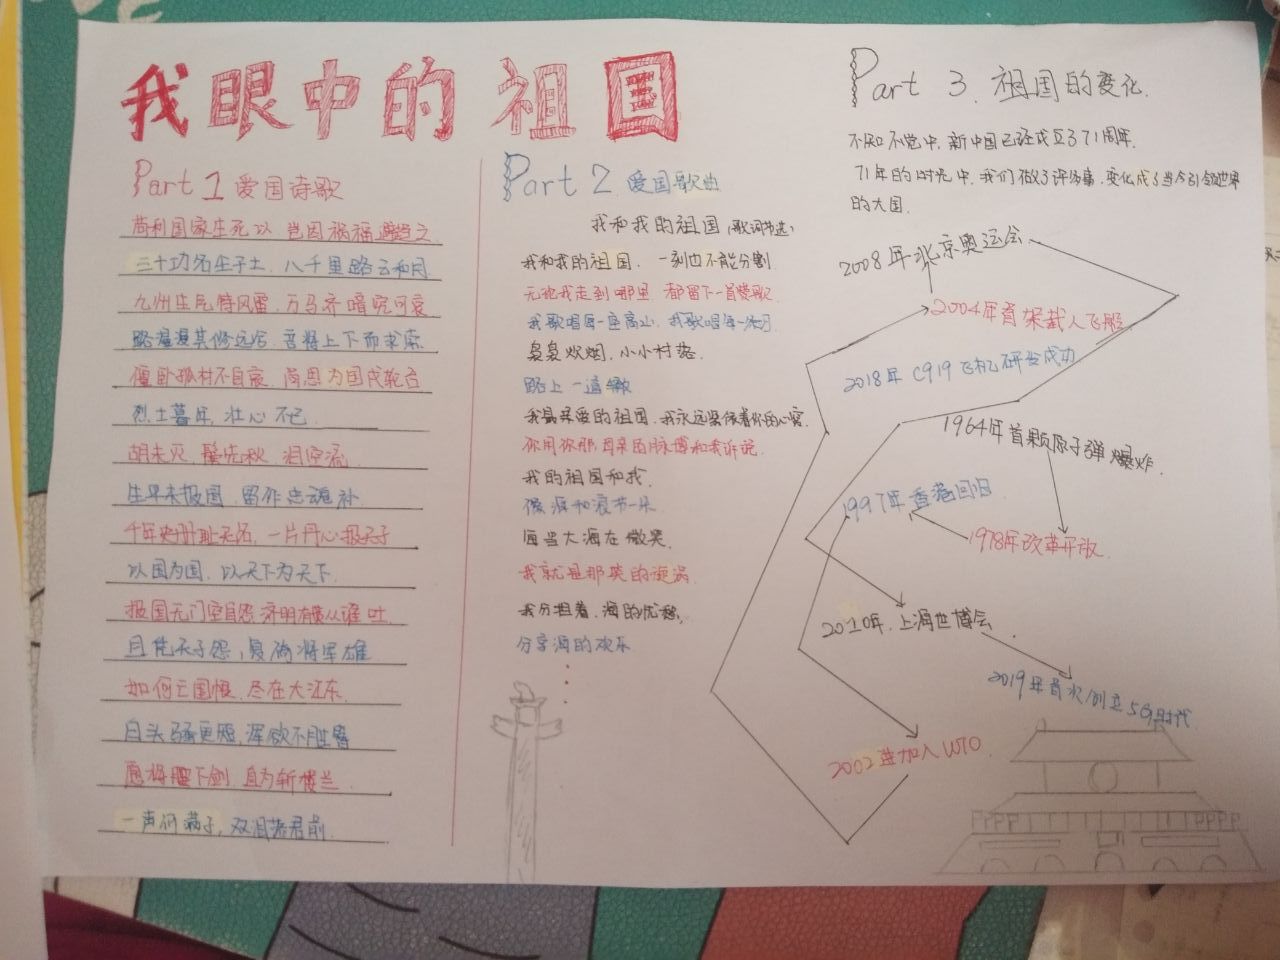 我眼中的祖国
Part 1 爱国诗歌
苟利国家生死以 岂因祸福避趋之
三十功名尘于土, 八千里路云和月
九州生气恃风雷, 万马齐喑究可哀
路漫漫其修远兮 吾将上下而求索
僵卧孤村不自哀, 尚思为国戍轮台
烈士暮年, 壮心不已
胡未灭, 鬓先秋, 泪空流
生平未报国, 留作忠魂补
千年史册耻无名, 一片丹心报天子
以国为国, 以天下为天下
报国无门空自怨 济时有策从谁吐
且凭天子怒, 复倚将军雄
如何亡国恨, 尽在大江东
白头搔更短, 浑欲不胜簪
愿将腰下剑, 直为斩楼兰
一声何满子, 双泪落君前
Part 2 爱国歌曲
我和我的祖国（歌词节选）
我和我的祖国, 一刻也不能分割
无论我走到哪里 都留下一首赞歌
我歌唱每一座高山, 我歌唱每一条河
袅袅炊烟, 小小村落,
路上一道辙
我最亲爱的祖国, 我永远紧依着你的心窝
你用你那母亲的脉搏和我诉说
我的祖国和我,
像海和浪花一朵
每当大海在微笑,
我就是那笑的漩涡
我分担着, 海的忧愁,
分享海的欢乐
Part 3. 祖国的变化.
不知不觉中, 新中国已经成立了71周年.
71年的时光中, 我们做了许多事, 变化成了当今引领世界
的大国.
2008年北京奥运会
2004年首架载人飞船
2018年 C919飞机研发成功
1964年首颗原子弹爆炸.
1997年香港回归
1978年改革开放.
2010年. 上海世博会
2019年首次创立5G时代
2002 加入WTO